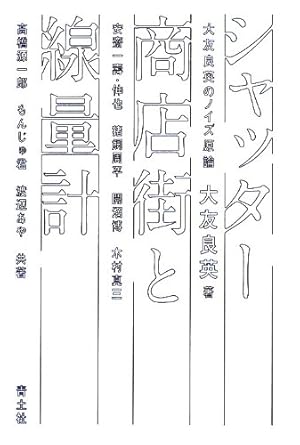 シャッター
商店街と
線量計
大友良英のノイズ原論
大友良英 著
安齋一壽・伸也 諸網周平 開沼博 木村真三
高橋源一郎 もんじゅ君 渡辺あや 共著
青土社